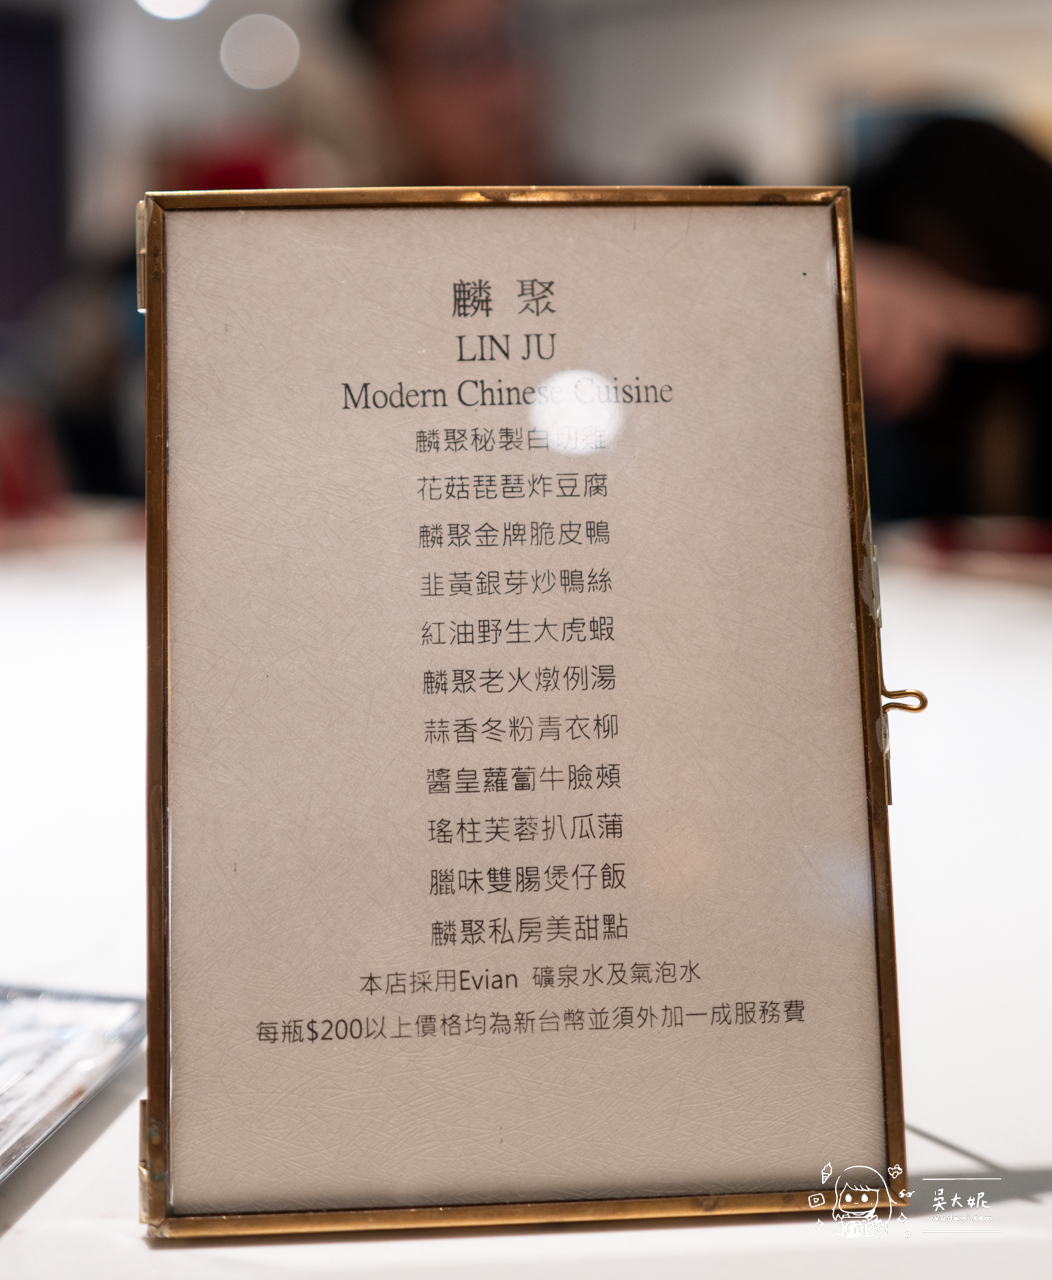 麟 聚
LIN JU
Modern Chinese Cuisine
麟聚秘製白切雞
花菇琵琶炸豆腐
麟聚金牌脆皮鴨
韭黃銀芽炒鴨絲
紅油野生大虎蝦
麟聚老火燉例湯
蒜香冬粉青衣柳
醬皇蘿蔔牛臉頰
瑤柱芙蓉扒瓜蒲
臘味雙腸煲仔飯
麟聚私房美甜點
本店採用Evian 礦泉水及氣泡水
每瓶$200以上價格均為新台幣並須外加一成服務費
吳大妮